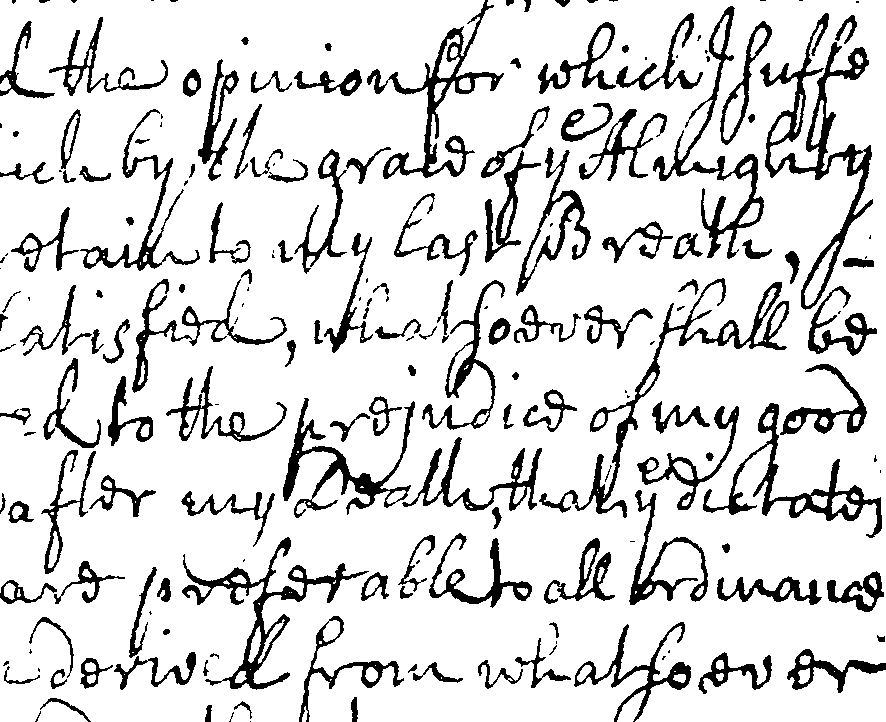 the opinion for which I suffe
ich by the grace of yᵉ Almighty
retain to my last Breath, I
satisfied, whatsoever shall be
ed to the prejudice of my good
after my Death, that yᵉ dictates
are preferable to all ordinance
derived from whatsoever